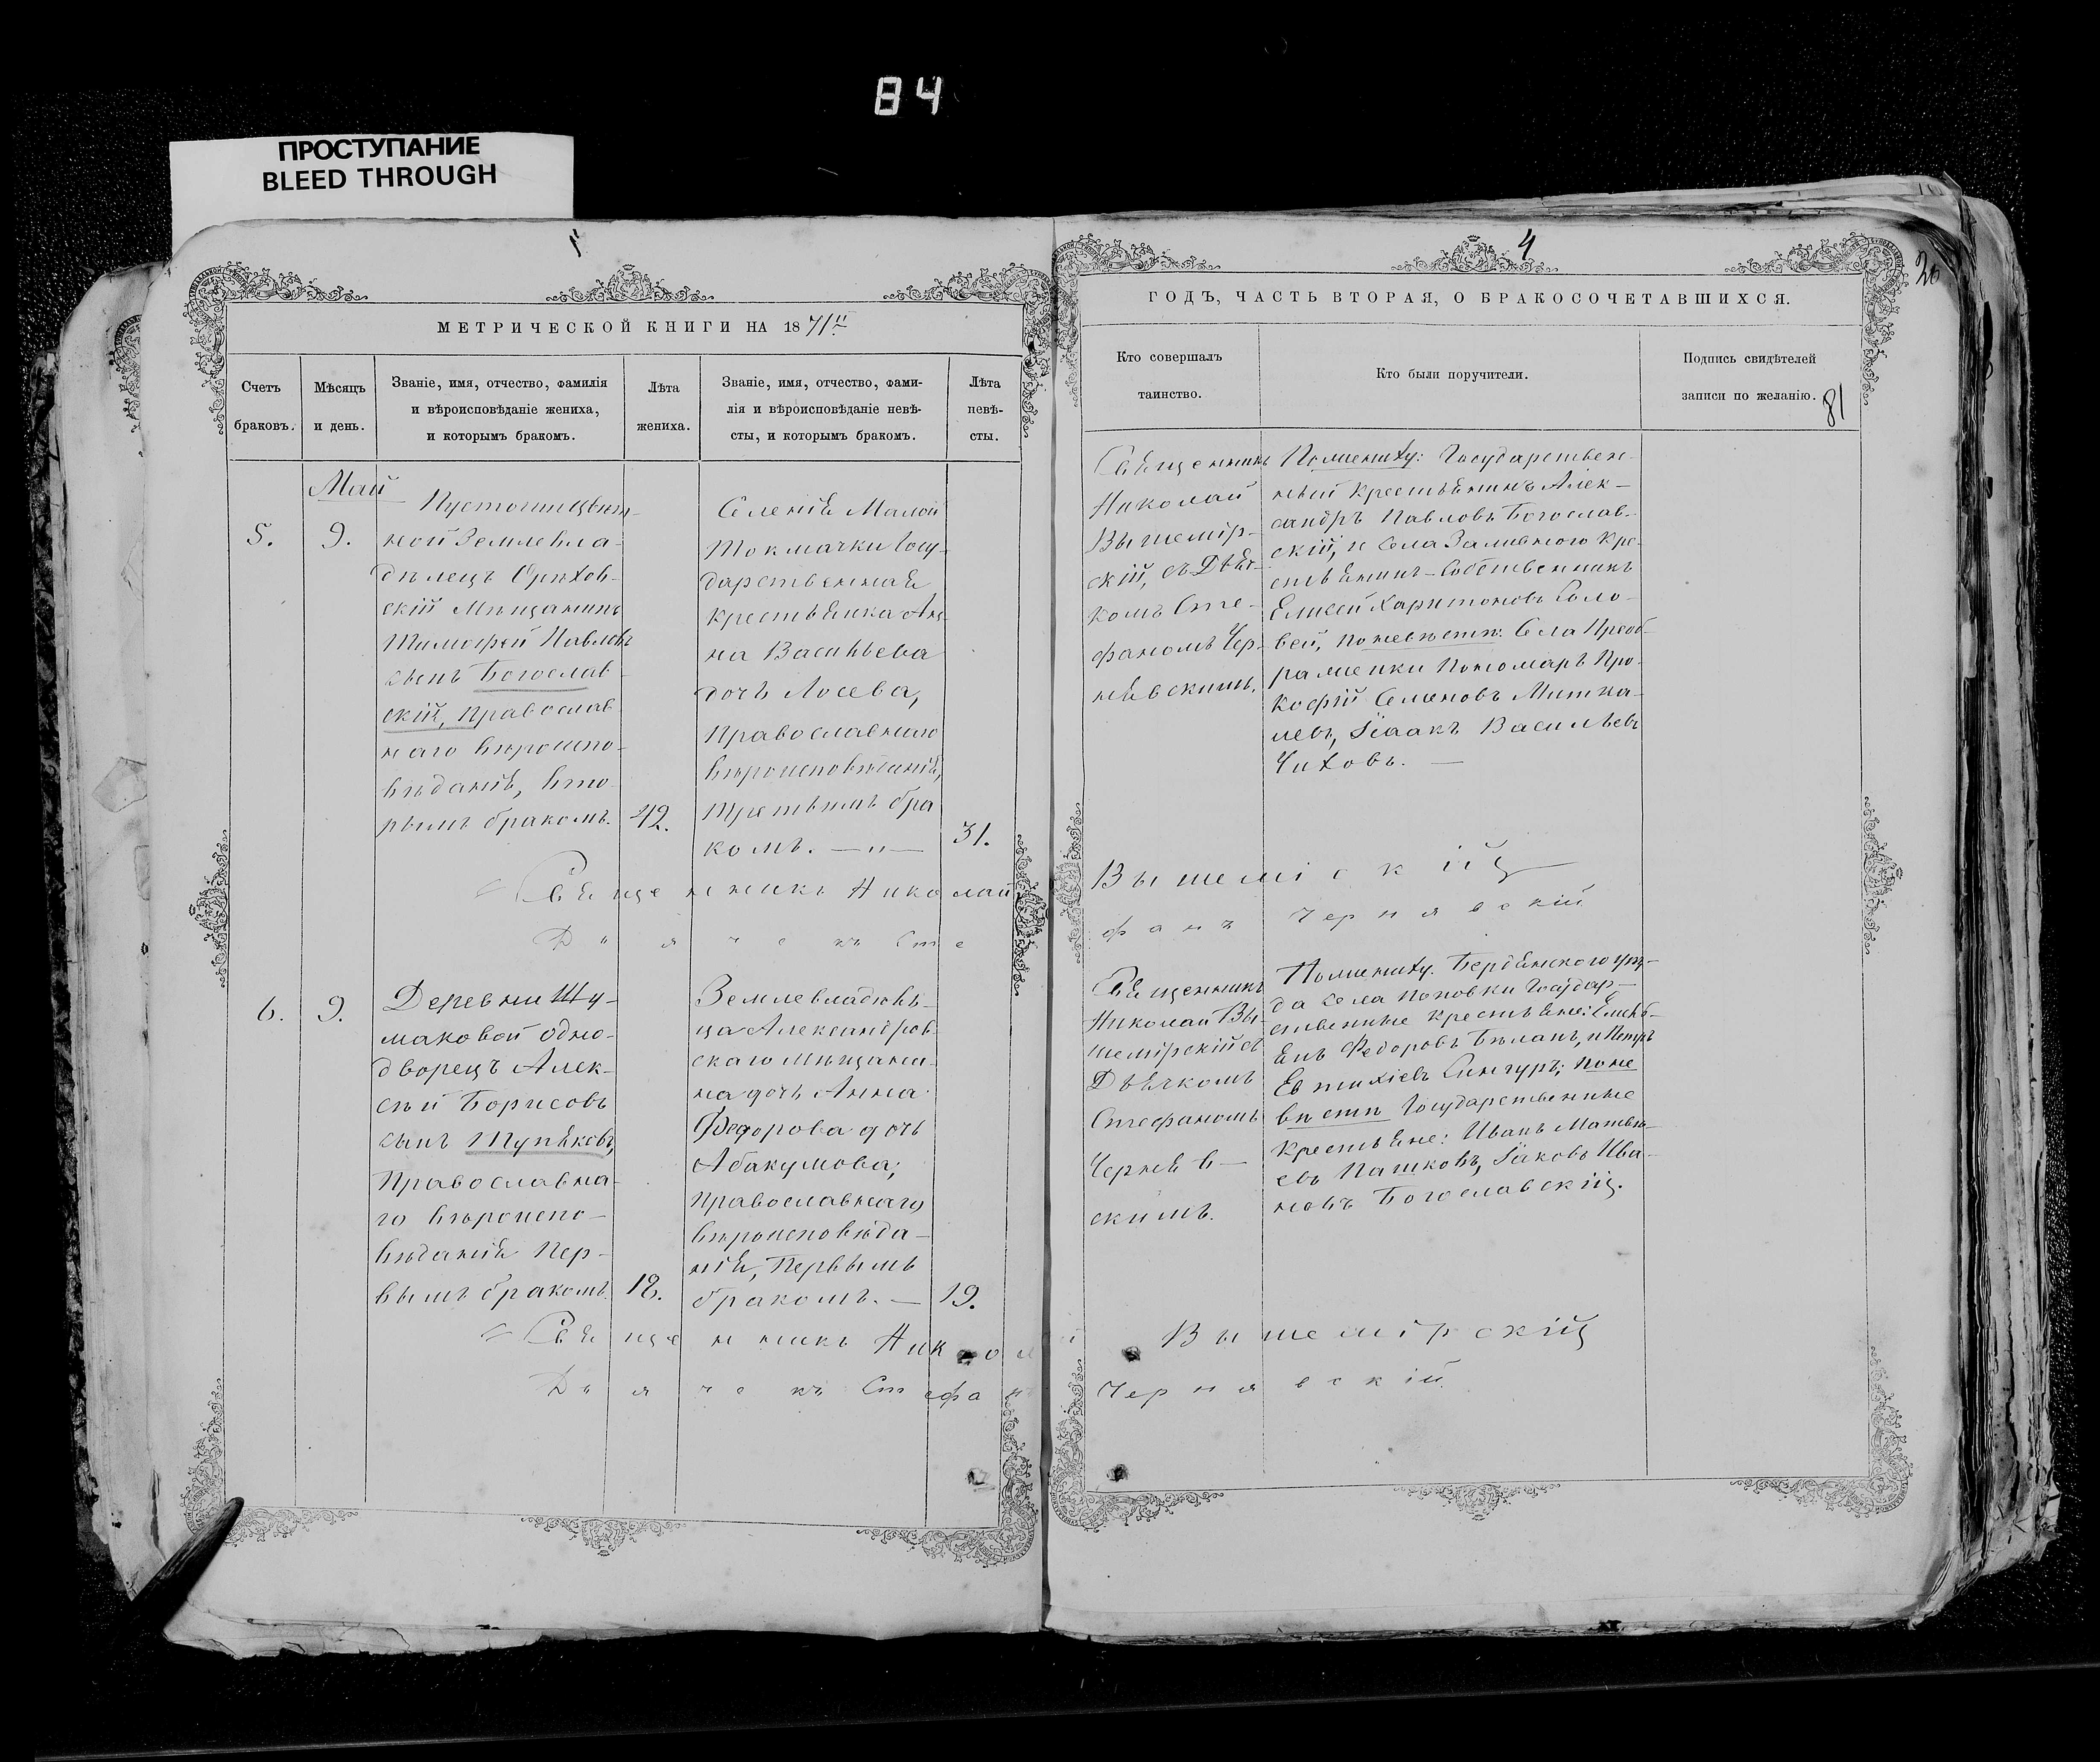 84
ПРОСТУПАНИЕ
BLEED THROUGH
МЕТРИЧЕСКОЙ КНИГИ НА 1871й
Счетъ
браковъ.
Мѣсяцъ
и день.
Званіе, имя, отчество, фамилія
и вѣроисповѣданіе жениха,
и которымъ бракомъ.
Лѣта
жениха.
Званіе, имя, отчество, фами-
лія и вѣроисповѣданіе невѣ-
сты, и которымъ бракомъ.
Лѣта
невѣ-
сты.
Май
5.
9.
ной Землевла-
дѣлецъ Орѣхов-
скій Мѣщанинъ
Тимофей Павловъ
сынъ Богослав-
скій, Православ
наго вѣроиспо-
вѣданія, вто-
рымъ бракомъ.
42.
Селенія Малой
Токмачки Госу-
дарственная
крестьянка Ан-
на Васильева
дочь Лосева,
Православнаго
вѣроисповѣданія,
третьимъ бра
комъ. —"—
31.
Священникъ Николай
Дьячекъ Сте
6.
9.
Деревни Шу-
маковой одно-
дворецъ Алек-
сѣй Борисовъ
сынъ Тупяковъ,
Православна-
го вѣроиспо-
вѣданія Пер-
вымъ бракомъ.
18.
Землевладѣль-
ца Александров-
скаго Мѣщани-
на дочь Анна
Федорова дочь
Абакумова;
Православнаго
вѣроисповѣда-
нія, Первымъ
бракомъ. —
19.
Священникъ Никол
Дьячекъ Стефанъ
4
20
ГОДЪ, ЧАСТЬ ВТОРАЯ, О БРАКОСОЧЕТАВШИХСЯ.
Кто совершалъ
таинство.
Кто были поручители.
Подпись свидѣтелей
записи по желанію.
81
Священникъ
Николай
Вышемір-
скій, съ Дьяч-
комъ Сте-
фаномъ Чер-
нявскимъ.
По жениху: Государствен-
ный крестьянинъ Алек-
сандръ Павловъ Богослав-
скій, и села Заливного кре-
стьянинъ-собственникъ
Елисей Харитоновъ Соло-
вей, по невѣстѣ: Села Преоб-
раженки Пономарь Про-
кофій Семеновъ Митка-
левъ, Ісаакъ Васильевъ
Чиховъ. —
Вышемірскій
фанъ Чернявскій
Священникъ
Николай Вы-
шемірскій съ
Дьячкомъ
Стефаномъ
Черняв-
скимъ.
По жениху. Бердянского уѣз-
да села Поповки Государ-
ственные крестьяне: Емель-
янъ Федоровъ Бѣланъ, и Петръ
Евтихіевъ Сингуръ; по не
вѣстѣ Государственные
крестьяне: Иванъ Матвѣ-
евъ Пашковъ, Іаковъ Ива-
новъ Богославскій.
Вышемірскій
Чернявскій